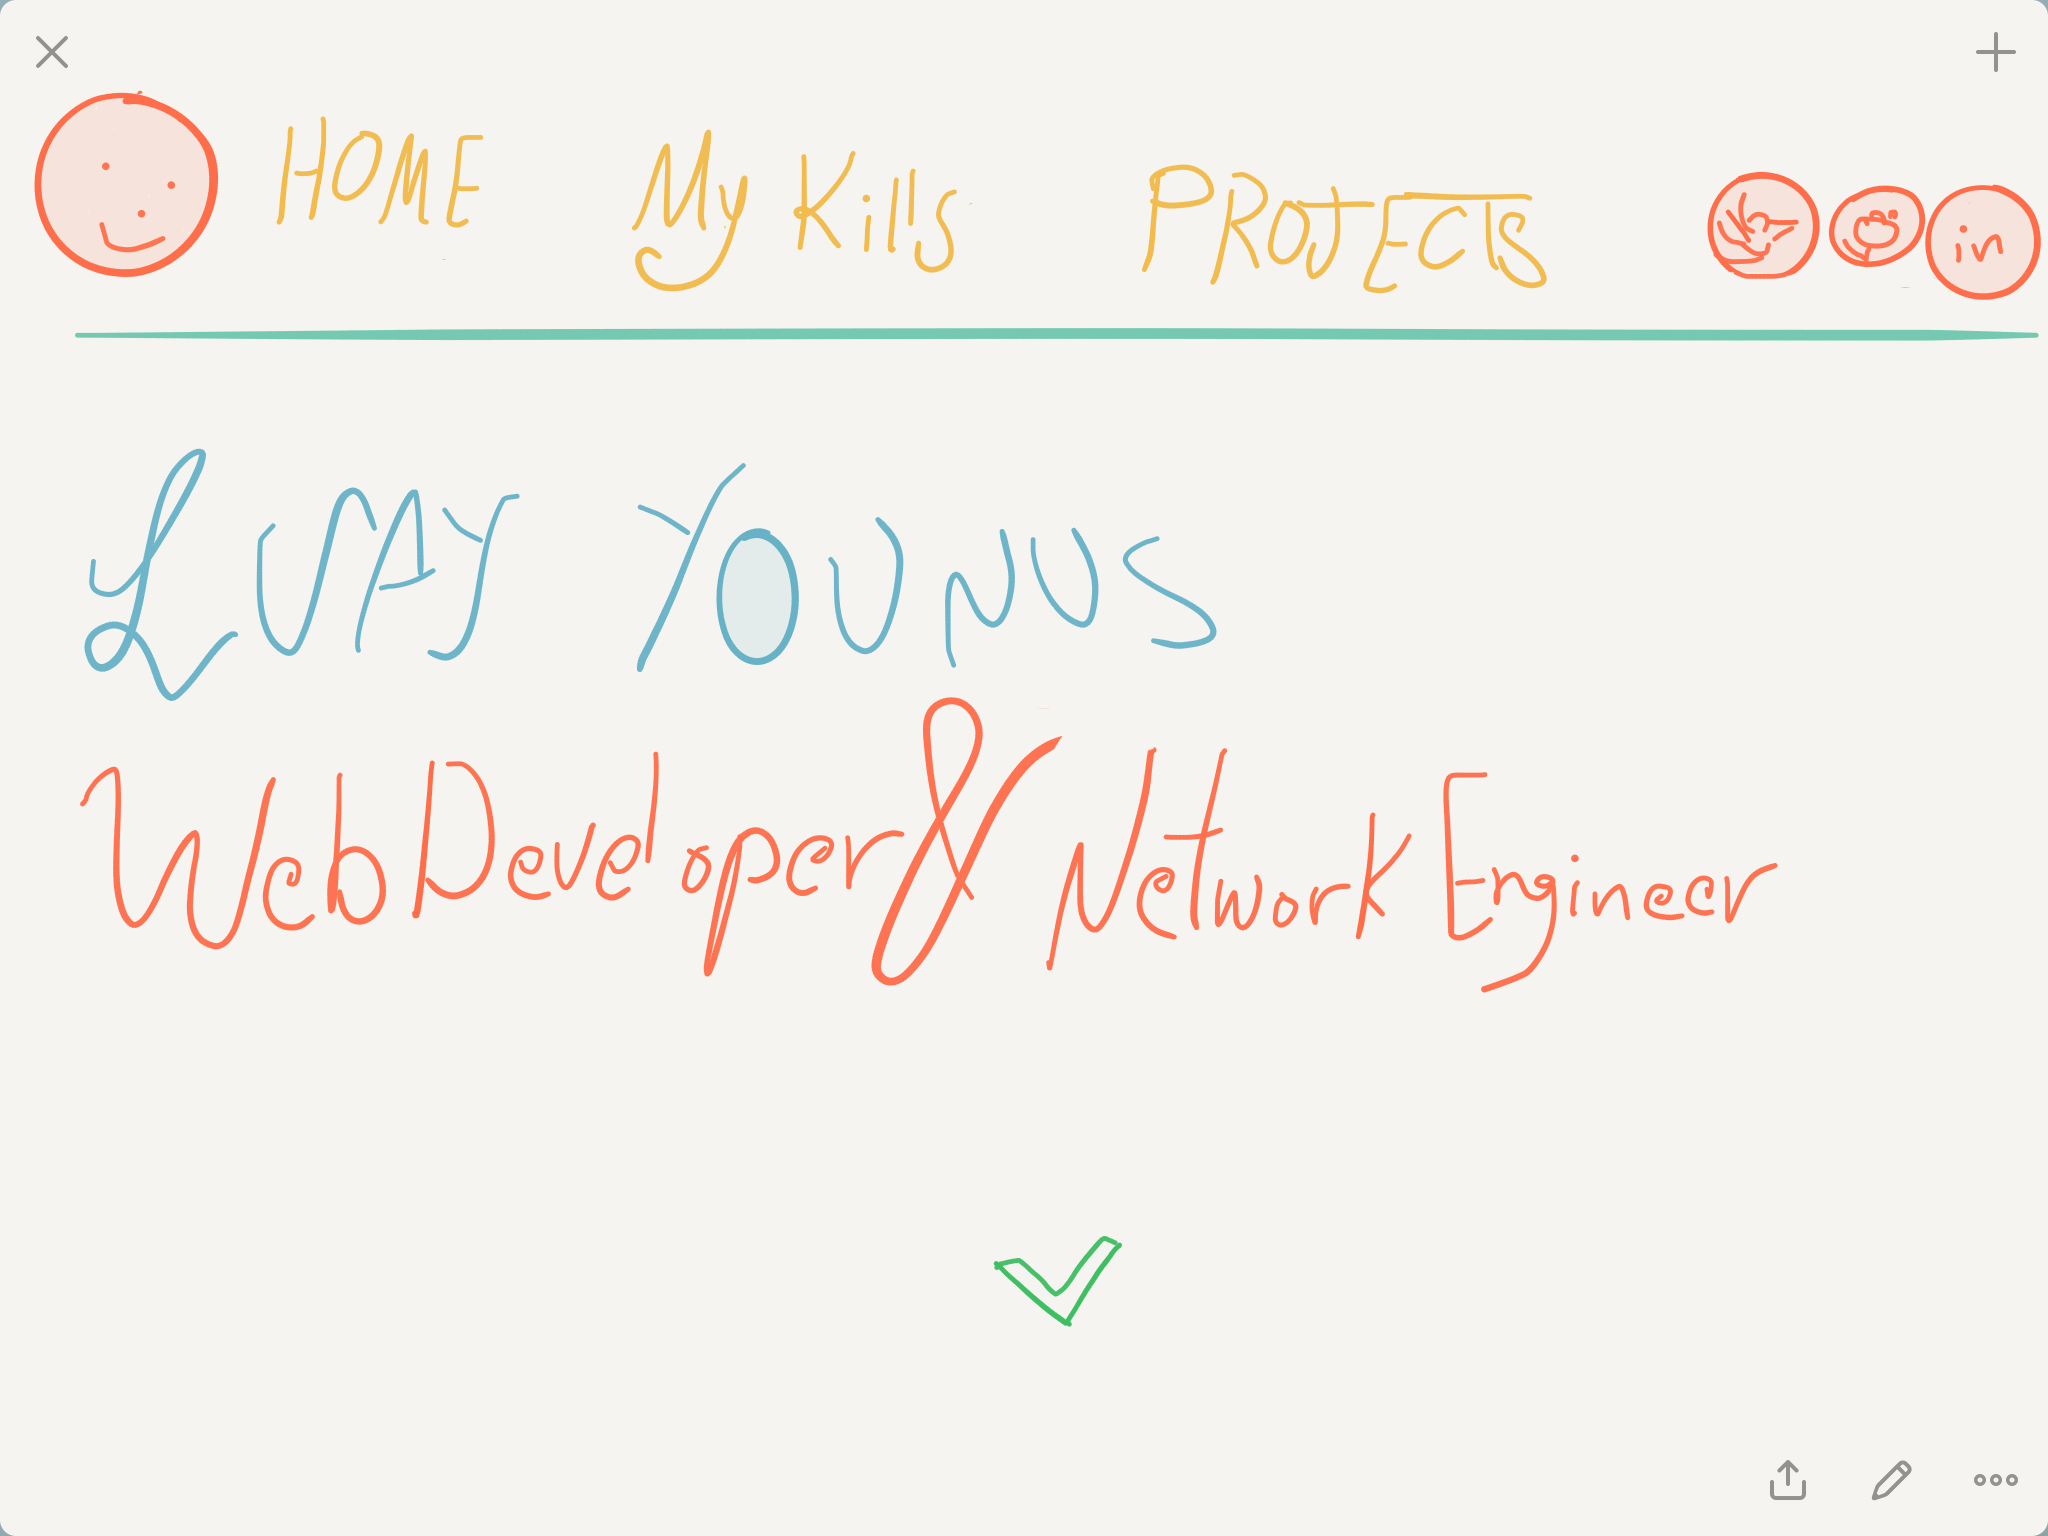 HOME My Kills PROJECTS in
LUAY YOUNUS
Web Developer & Network Engineer